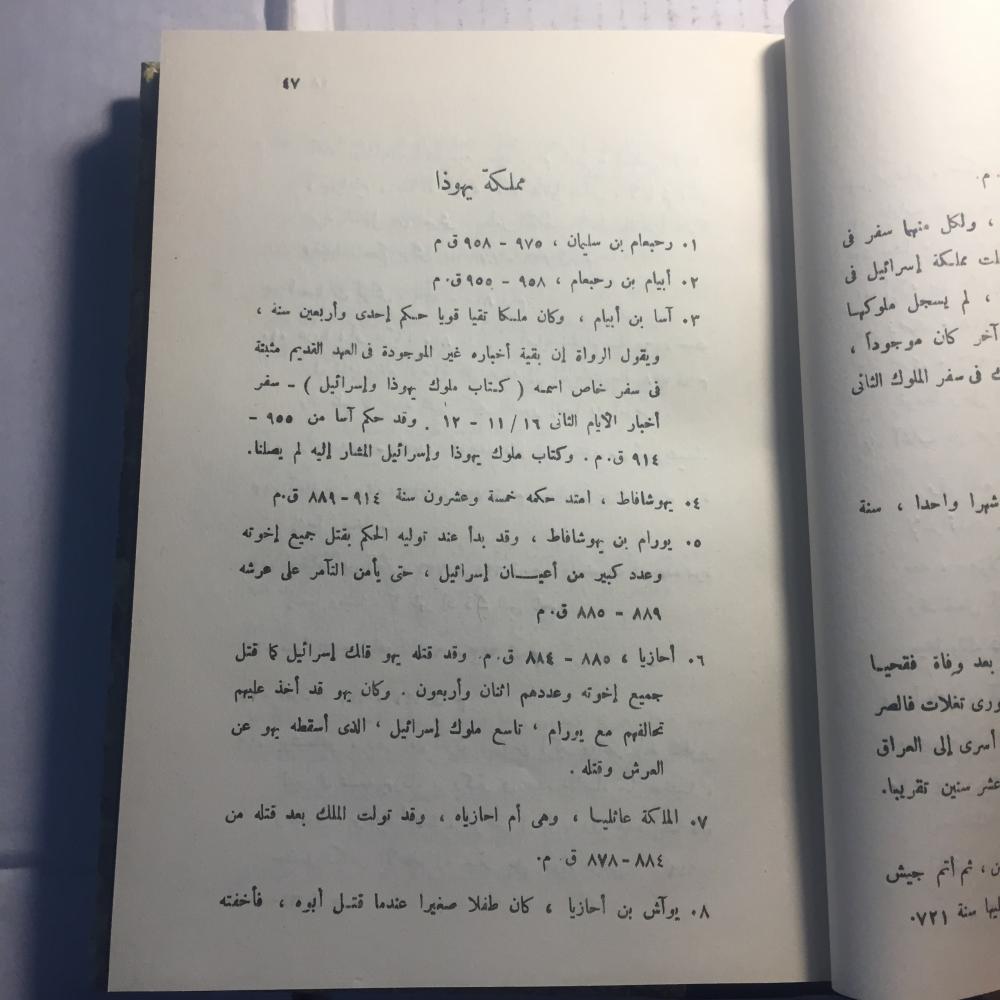 ٤٧
مملكة يهوذا
٠١ رحبعام بن سليمان ، ٩٧٥ - ٩٥٨ ق م
٠٢ أبيام بن رحبعام ، ٩٥٨ - ٩٥٥ ق.م
٠٣ آسا بن أبيام ، وكان ملكا تقيا قويا حكم إحدى وأربعين سنة ،
ويقول الرواة إن بقية أخباره غير الموجودة فى العهد القديم مثبتة
فى سفر خاص اسمه ( كتاب ملوك يهوذا وإسرائيل ) - سفر
أخبار الأيام الثانى ١٦ / ١١ - ١٢ . وقد حكم آسا من ٩٥٥ -
٩١٤ ق.م. وكتاب ملوك يهوذا وإسرائيل المشار إليه لم يصلنا.
٠٤ يهوشافاط ، امتد حكمه خمسة وعشرون سنة ٩١٤-٨٨٩ ق.م
٠٥ يورام بن يهوشافاط ، وقد بدأ عند توليه الحكم بقتل جميع إخوته
وعدد كبير من أعيان إسرائيل ، حتى يأمن التآمر على عرشه
٨٨٩ - ٨٨٥ ق.م
٠٦ أحازيا ، ٨٨٥ - ٨٨٤ ق.م. وقد قتله يهو قالك إسرائيل كما قتل
جميع إخوته وعددهم اثنان وأربعون . وكان يهو قد أخذ عليهم
تحالفهم مع يورام ، تاسع ملوك إسرائيل ، الذى أسقطه يهو عن
العرش وقتله .
٠٧ الملكة عاثليا ، وهى أم احازياه ، وقد تولت الملك بعد قتله من
٨٨٤-٨٧٨ ق.م.
٠٨ يوآش بن أحازيا ، كان طفلا صغيرا عندما قتل أبوه ، فأخفته
.م.
، ولكل منهما سفر فى
لت مملكة إسرائيل فى
، لم يسجل ملوكها
آخر كان موجوداً ،
ك فى سفر الملوك الثانى
شهرا واحدا ، سنة
بعد وفاة فقحيا
ورى تغلات فالصر
أسرى إلى العراق
عشر سنين تقريبا.
ن ، ثم أتم جيش
ليها سنة ٧٢١.